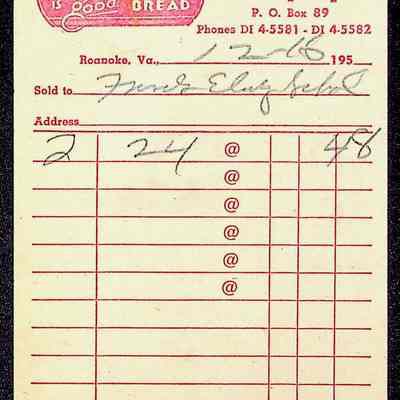 is good BREAD
P. O. Box 89
Phones DI 4-5581 - DI 4-5582
Roanoke, Va., 12-16 195
Sold to
Address
2 24 @ 48
@
@
@
@
@